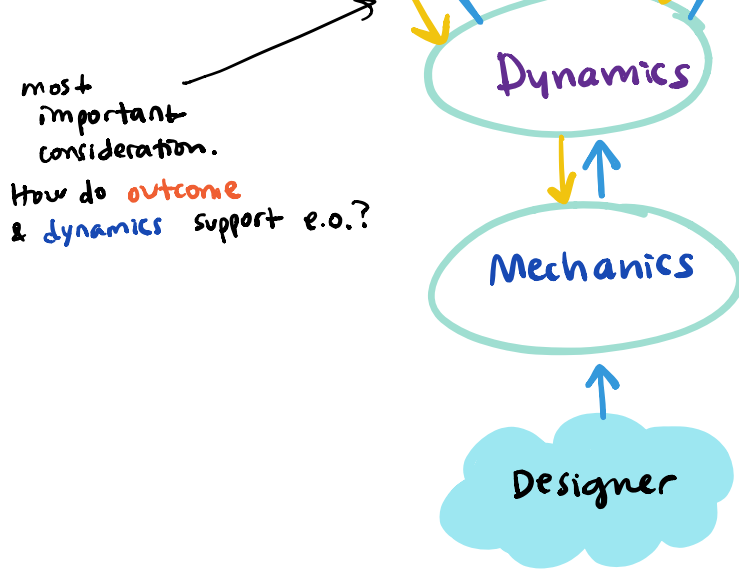 Dynamics
most
important
consideration.
How do outcome
& dynamics support e.o.?
Mechanics
Designer